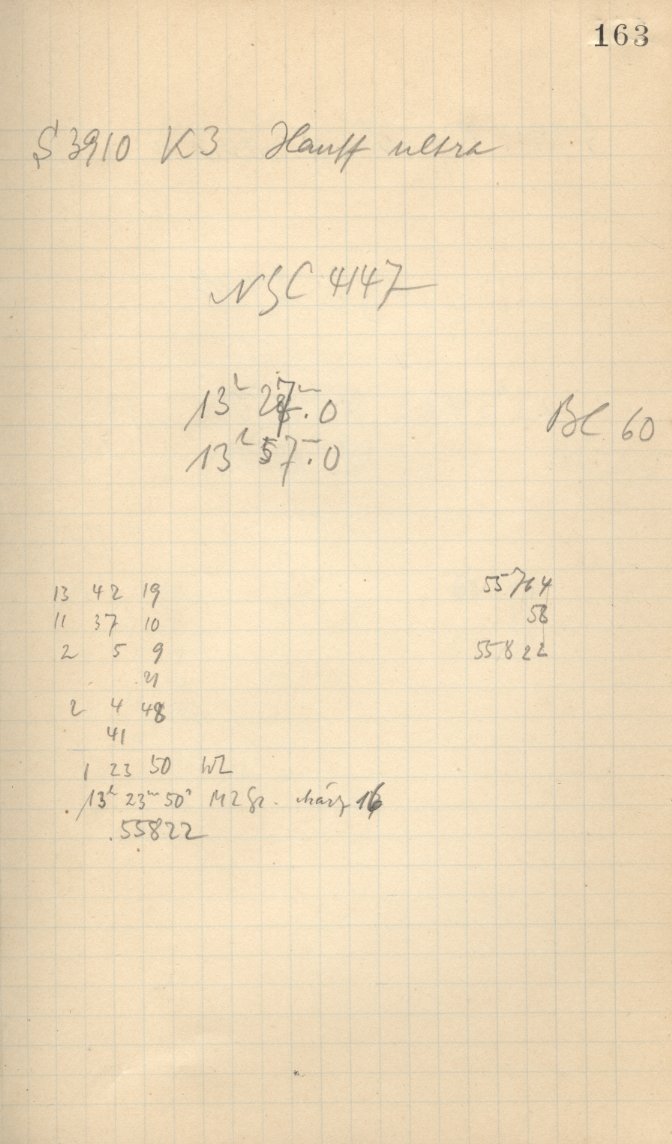 163
S 3910 K3 Hauff ultra
NGC 4147
13ʰ 27ᵐ.0
BC 60
13ʰ 57ᵐ.0
13 42 19
11 37 10
2 5 9
21
2 4 48
41
1 23 50 WZ
13ʰ 23ᵐ 50ˢ MZGr. März 16
.55822
55764
58
55822